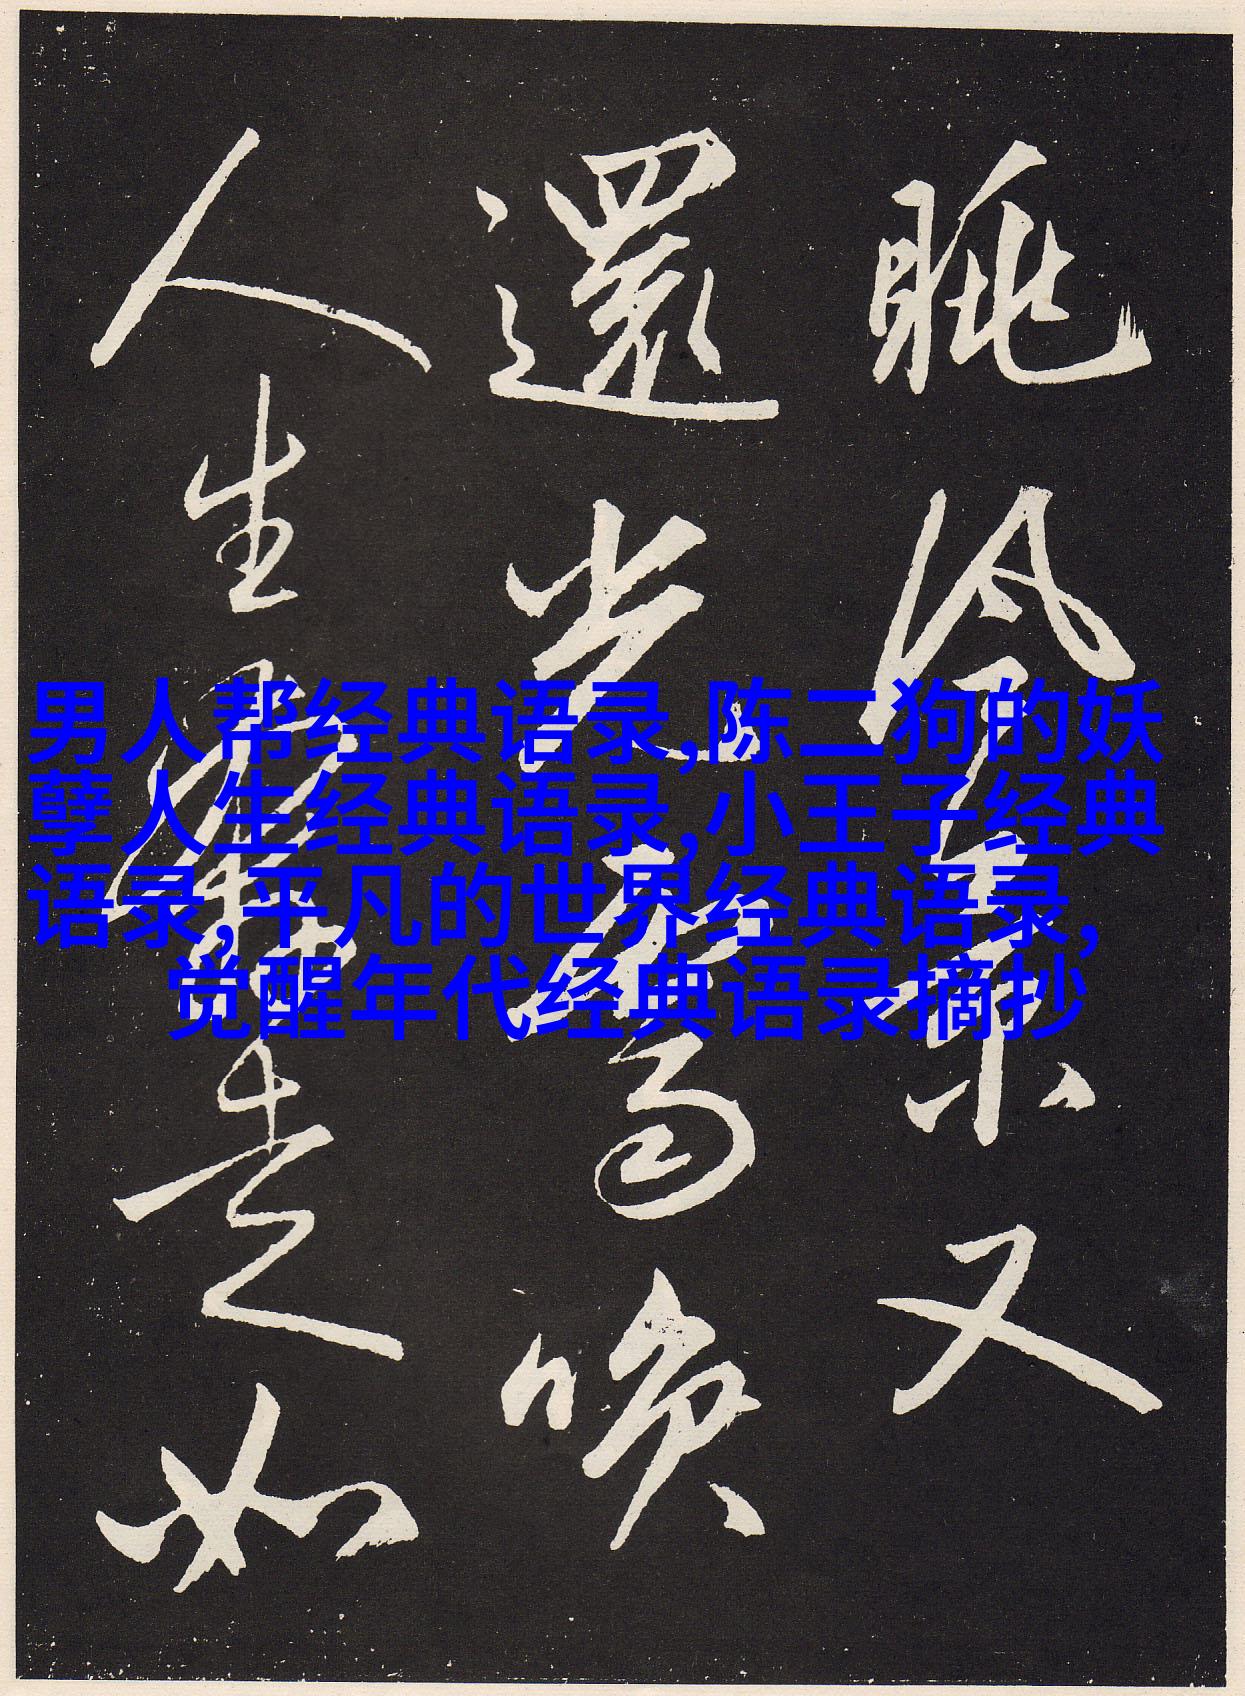 男人帮经典语录,陈二狗的妖
孽人生经典语录,小王子经典
语录,平凡的世界经典语录,
觉醒年代经典语录摘抄
眺泠 又
還
喚
人生 走如